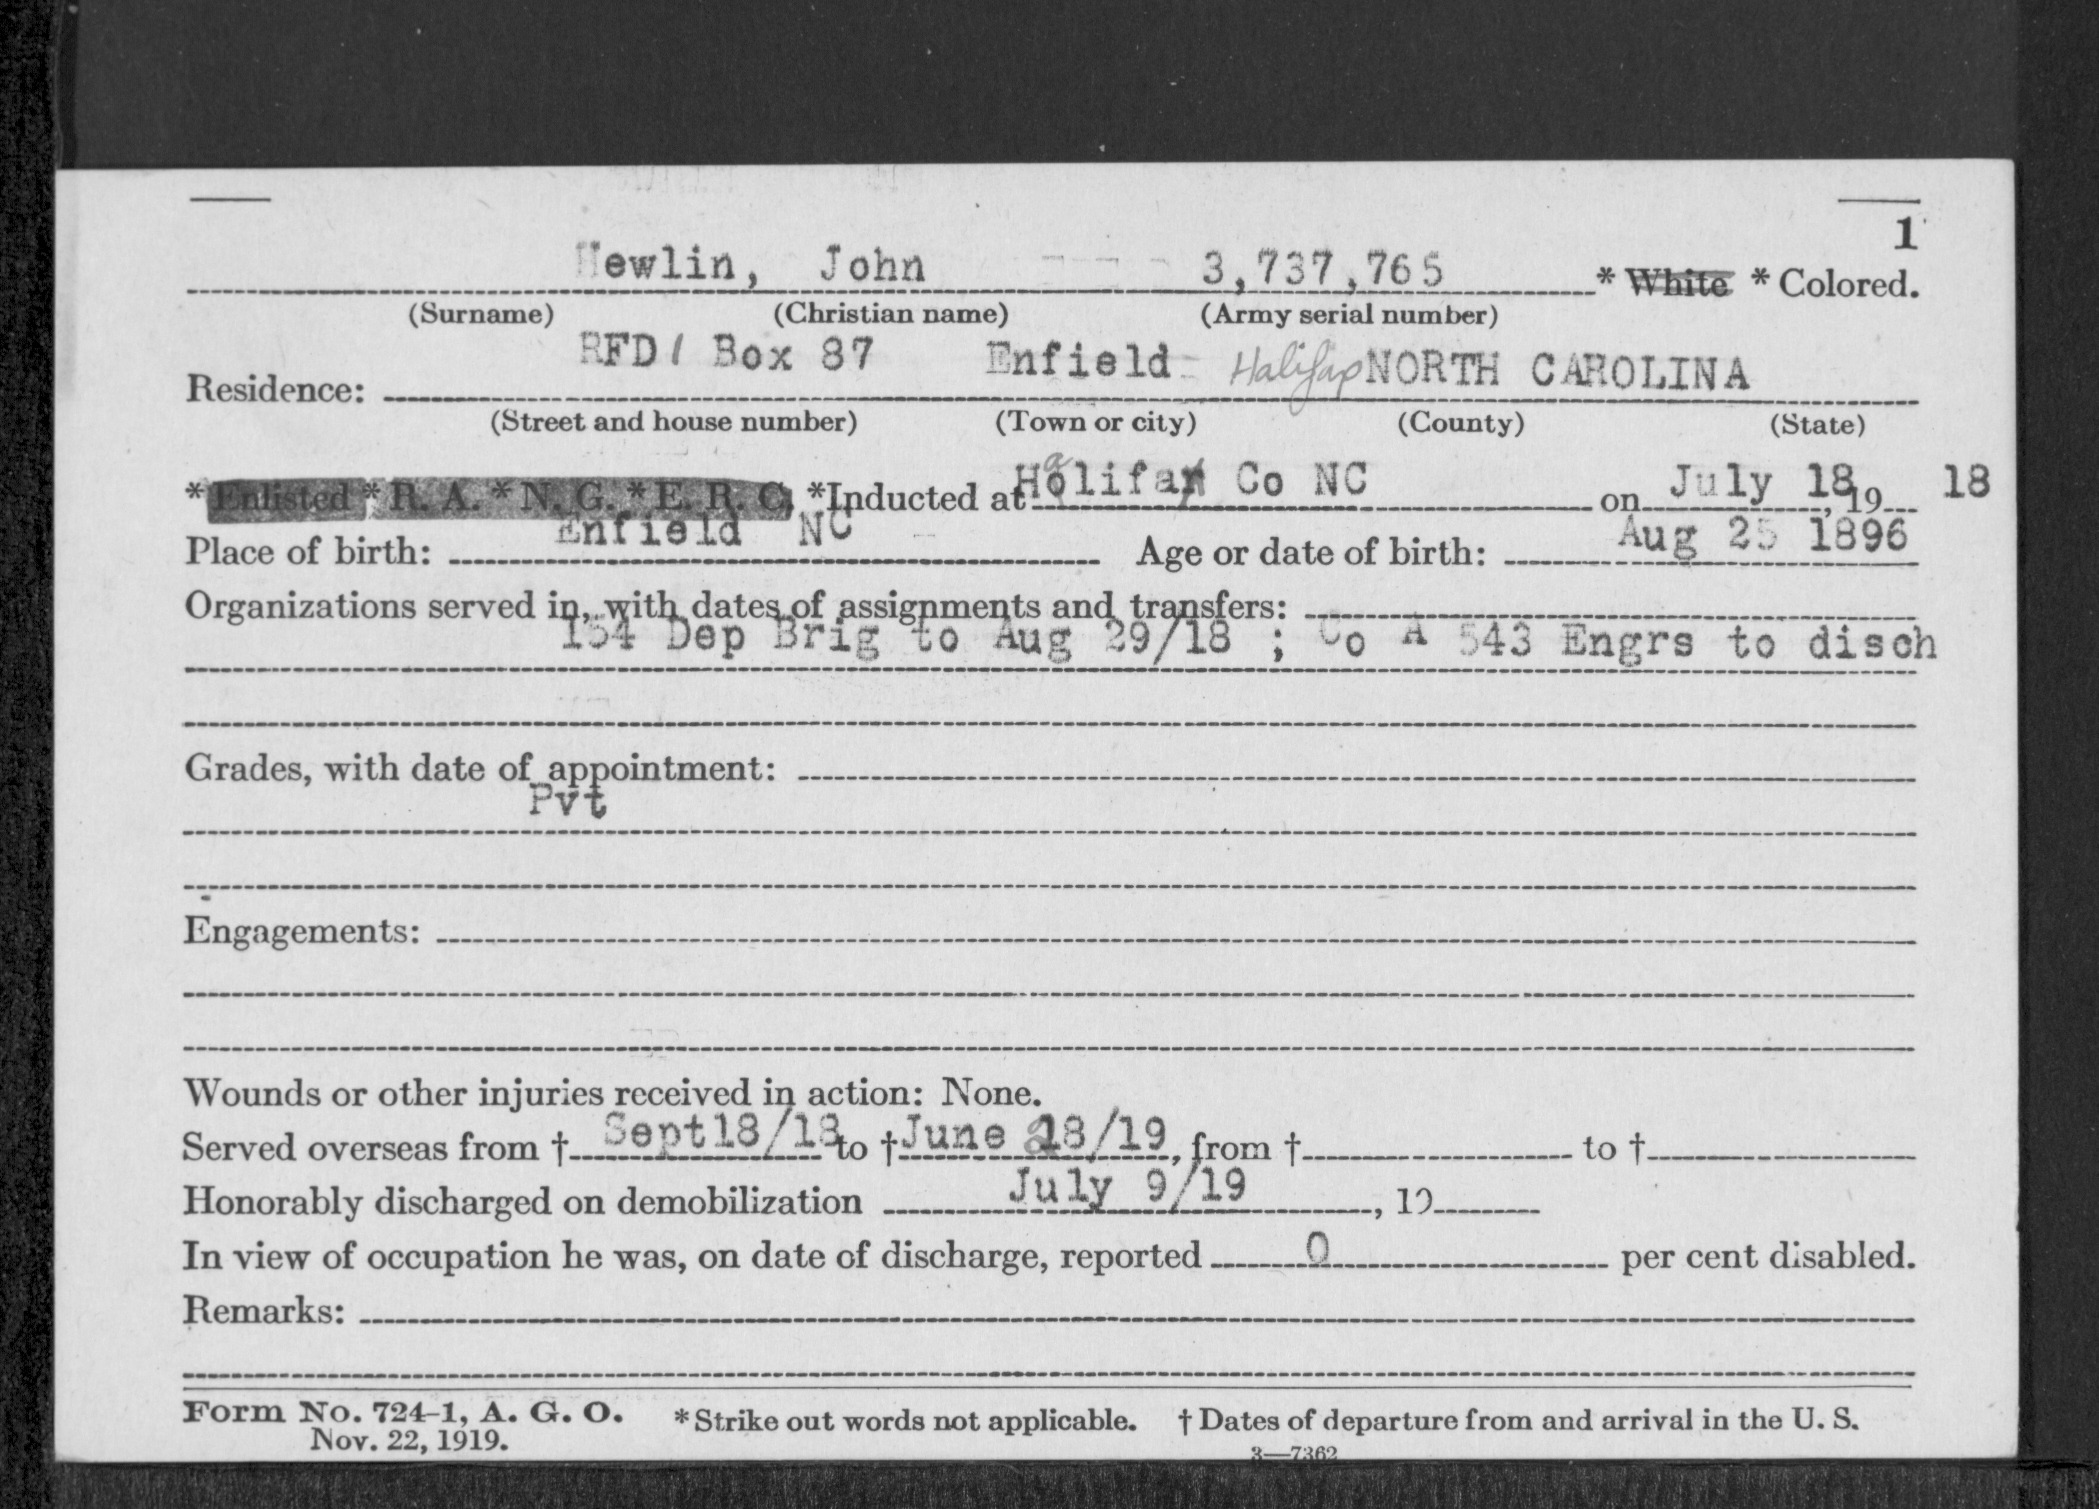 1
Hewlin, John - - - 3,737,765 * White * Colored.
(Surname) (Christian name) (Army serial number)
RFD 1 Box 87 Enfield Halifax NORTH CAROLINA
Residence:
(Street and house number) (Town or city) (County) (State)
* Enlisted * R. A. * N. G. * E. R. C. *Inducted at Halifax Co NC on July 18, 19 18
Place of birth: Enfield NC Age or date of birth: Aug 25 1896
Organizations served in, with dates of assignments and transfers:
154 Dep Brig to Aug 29/18 ; Co A 543 Engrs to disch
Grades, with date of appointment:
Pvt
Engagements:
Wounds or other injuries received in action: None.
Served overseas from † Sept 18/18 to † June 28/19, from † to †
Honorably discharged on demobilization July 9/19, 19
In view of occupation he was, on date of discharge, reported 0 per cent disabled.
Remarks:
Form No. 724-1, A. G. O. * Strike out words not applicable. † Dates of departure from and arrival in the U. S.
Nov. 22, 1919.
3—7362